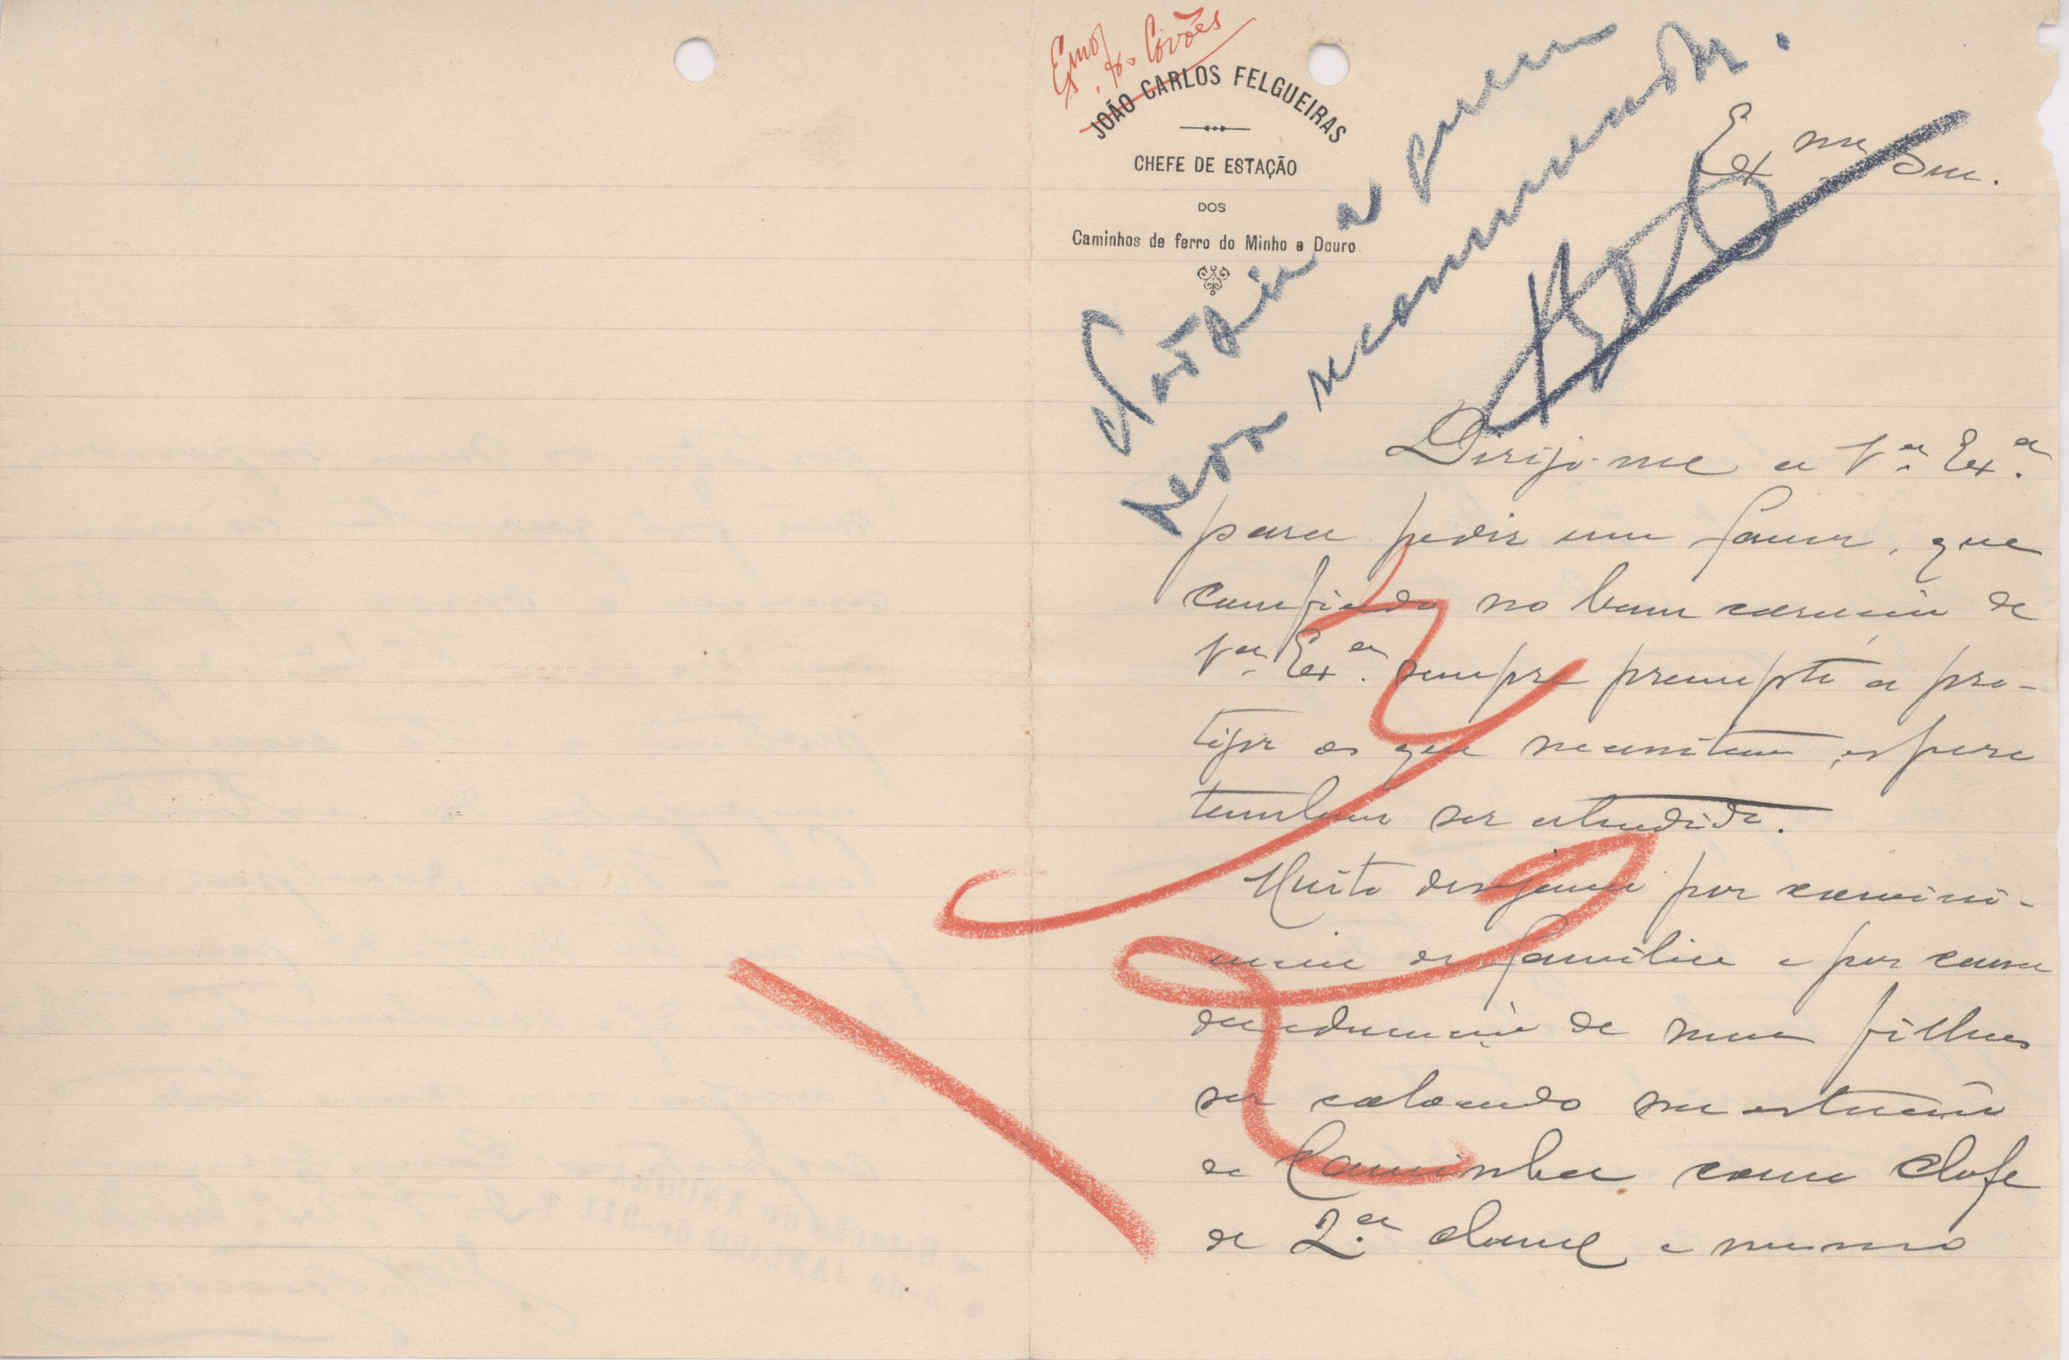 JOÃO CARLOS FELGUEIRAS
CHEFE DE ESTAÇÃO
DOS
Caminhos de ferro do Minho e Douro
Não sin a quem
recommendar.
Exmo Snr.
Dirijo-me a Vª Exª
para pedir um favor, que
confiado no bom coração de
Vª Exª sempre prompto a pro-
tejer os que necessitam, espero
tambem ser attendido.
Muito desejava por conveni-
encia de familia e por causa
da educação de meus filhos
ser colocado na estação
de Caminha como chefe
de 2.ª classe e mesmo